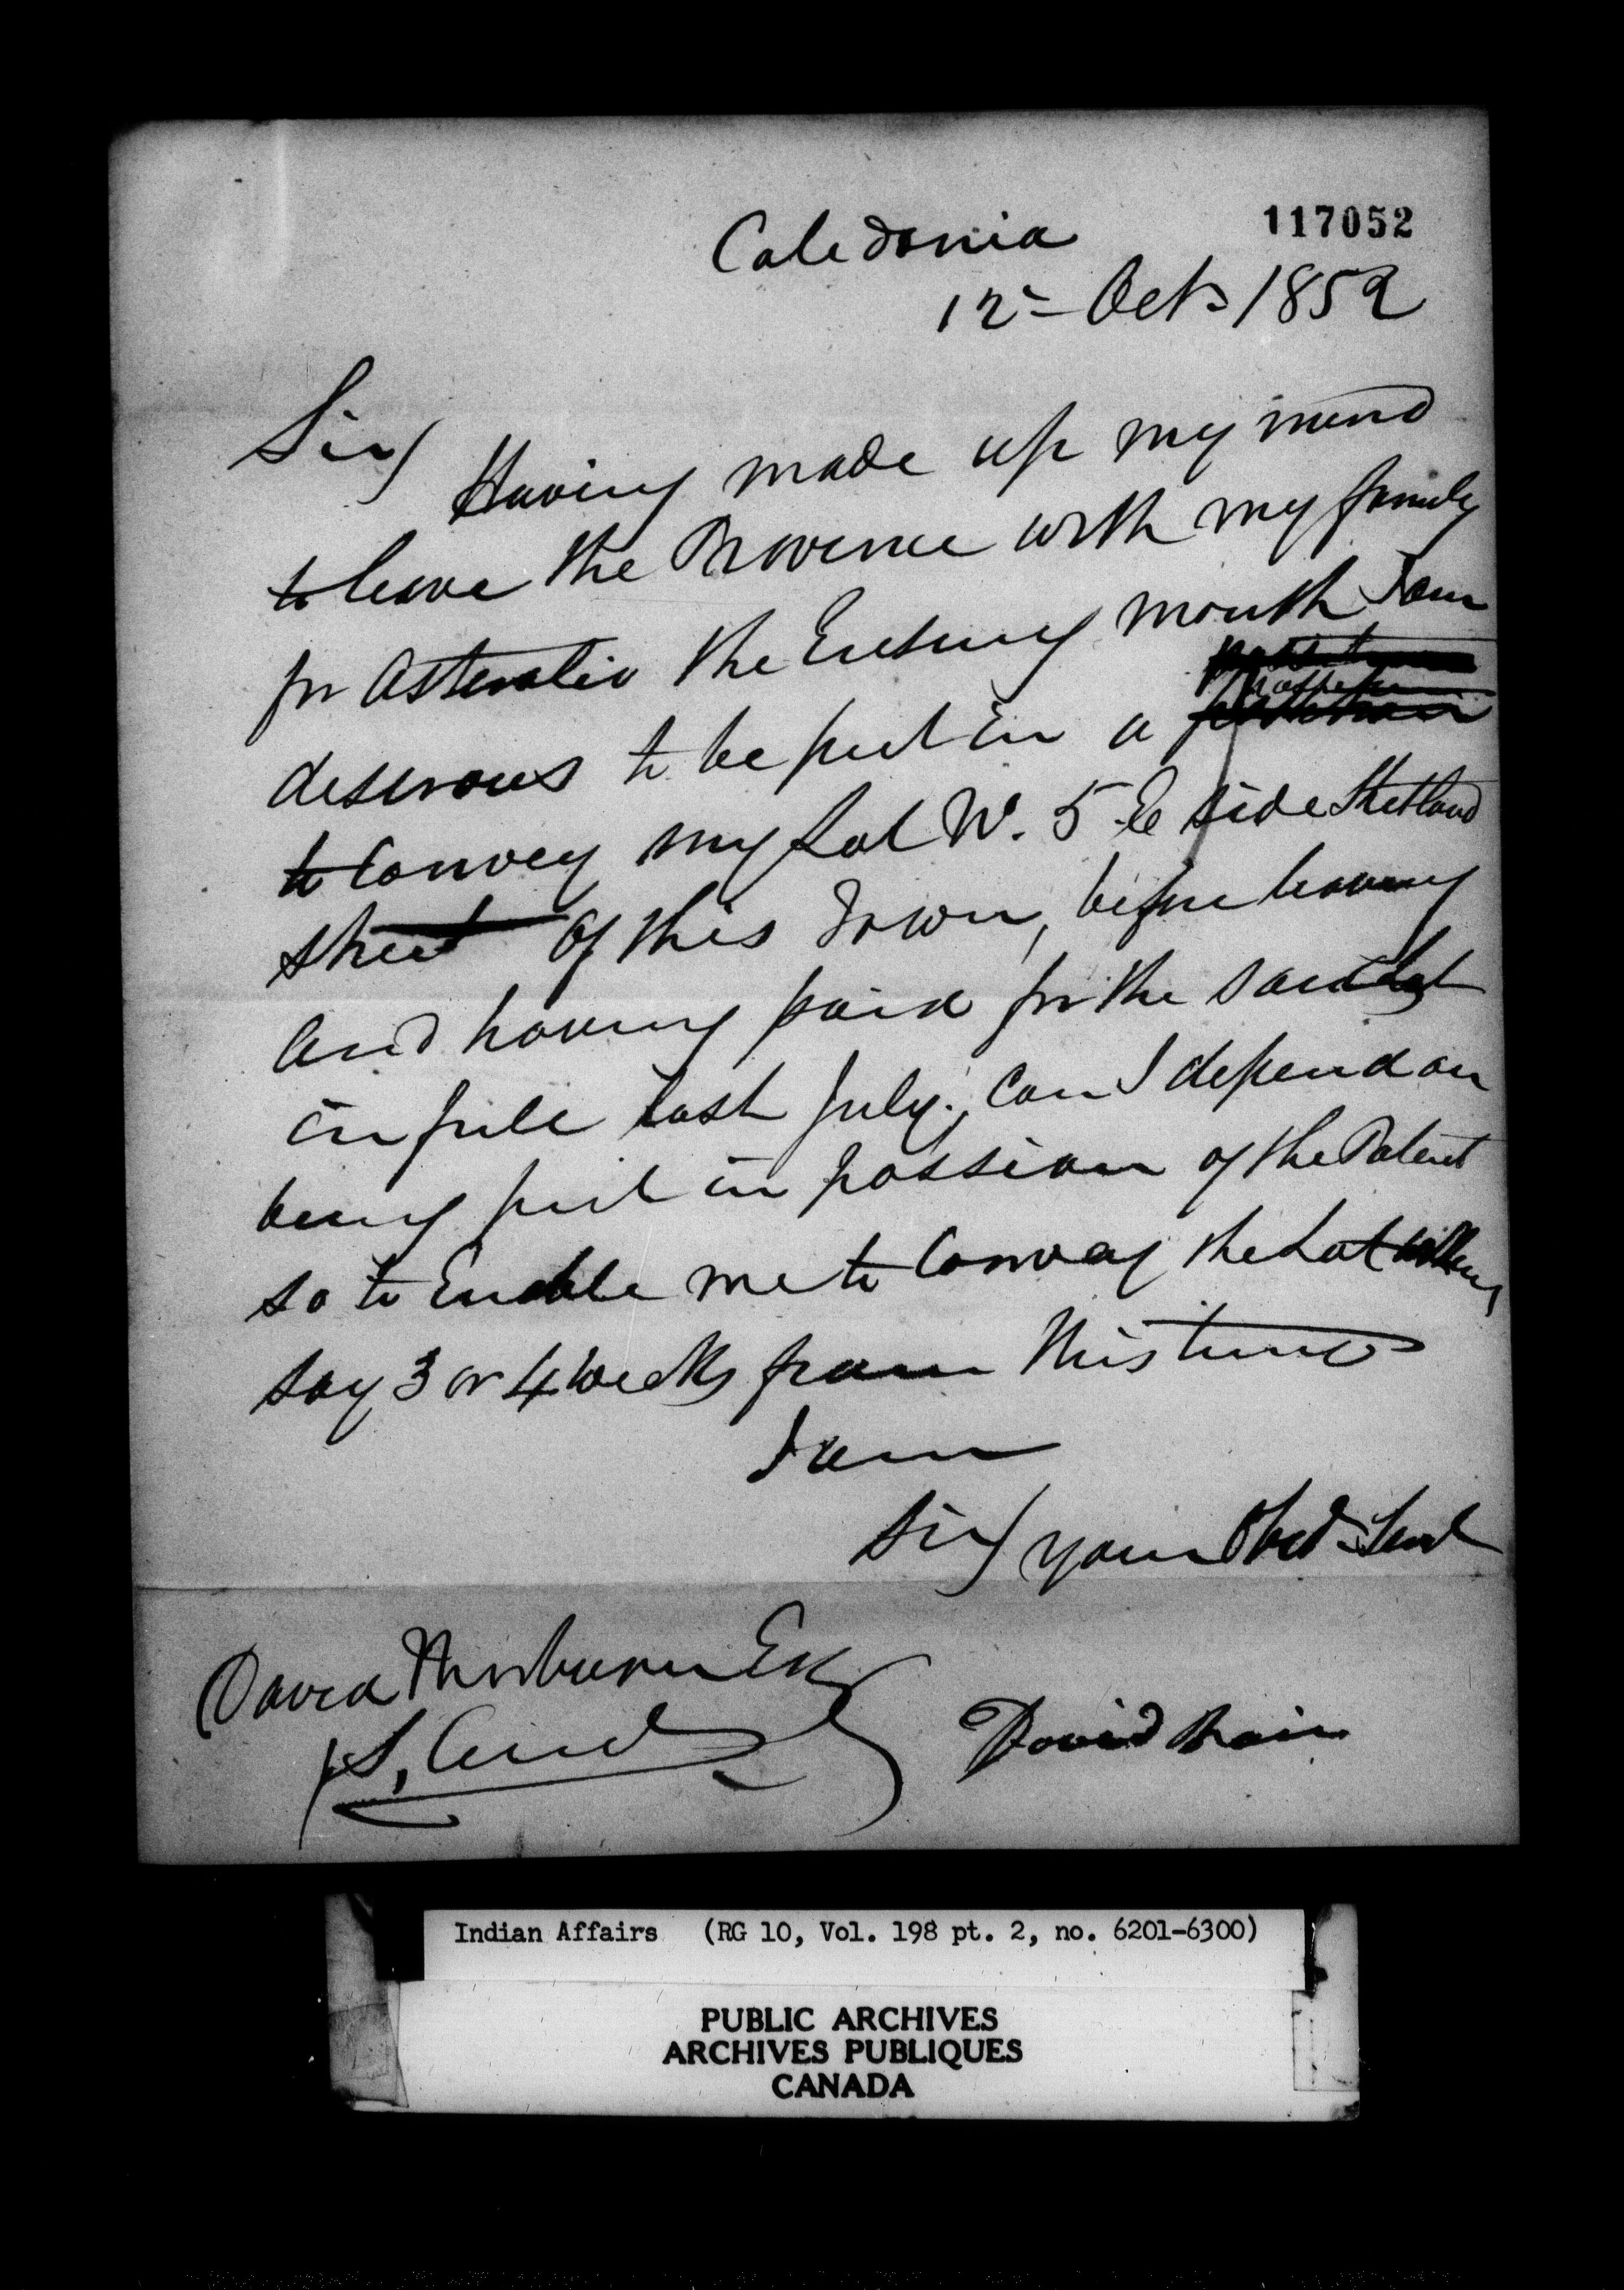 117052
Caledonia
12 = Oct 1852
Sir
Having made up my mind
to leave the Province with my family
for Asteralia the Ensuing month I am
desirous to be put in a
to Convey my Lot N. 5 E side Shetland
street of this Town, before leaving
and having paid for the said Lot
in full last July. Can I depend on
being put in possion of the Patent
so to Enable me to Convey the Lot within
say 3 or 4 weeks from this time
I am
Sir your Obed Servt
David Thorburn Esq
David
Indian Affairs (RG 10, Vol. 198 pt. 2, no. 6201-6300)
PUBLIC ARCHIVES
ARCHIVES PUBLIQUES
CANADA